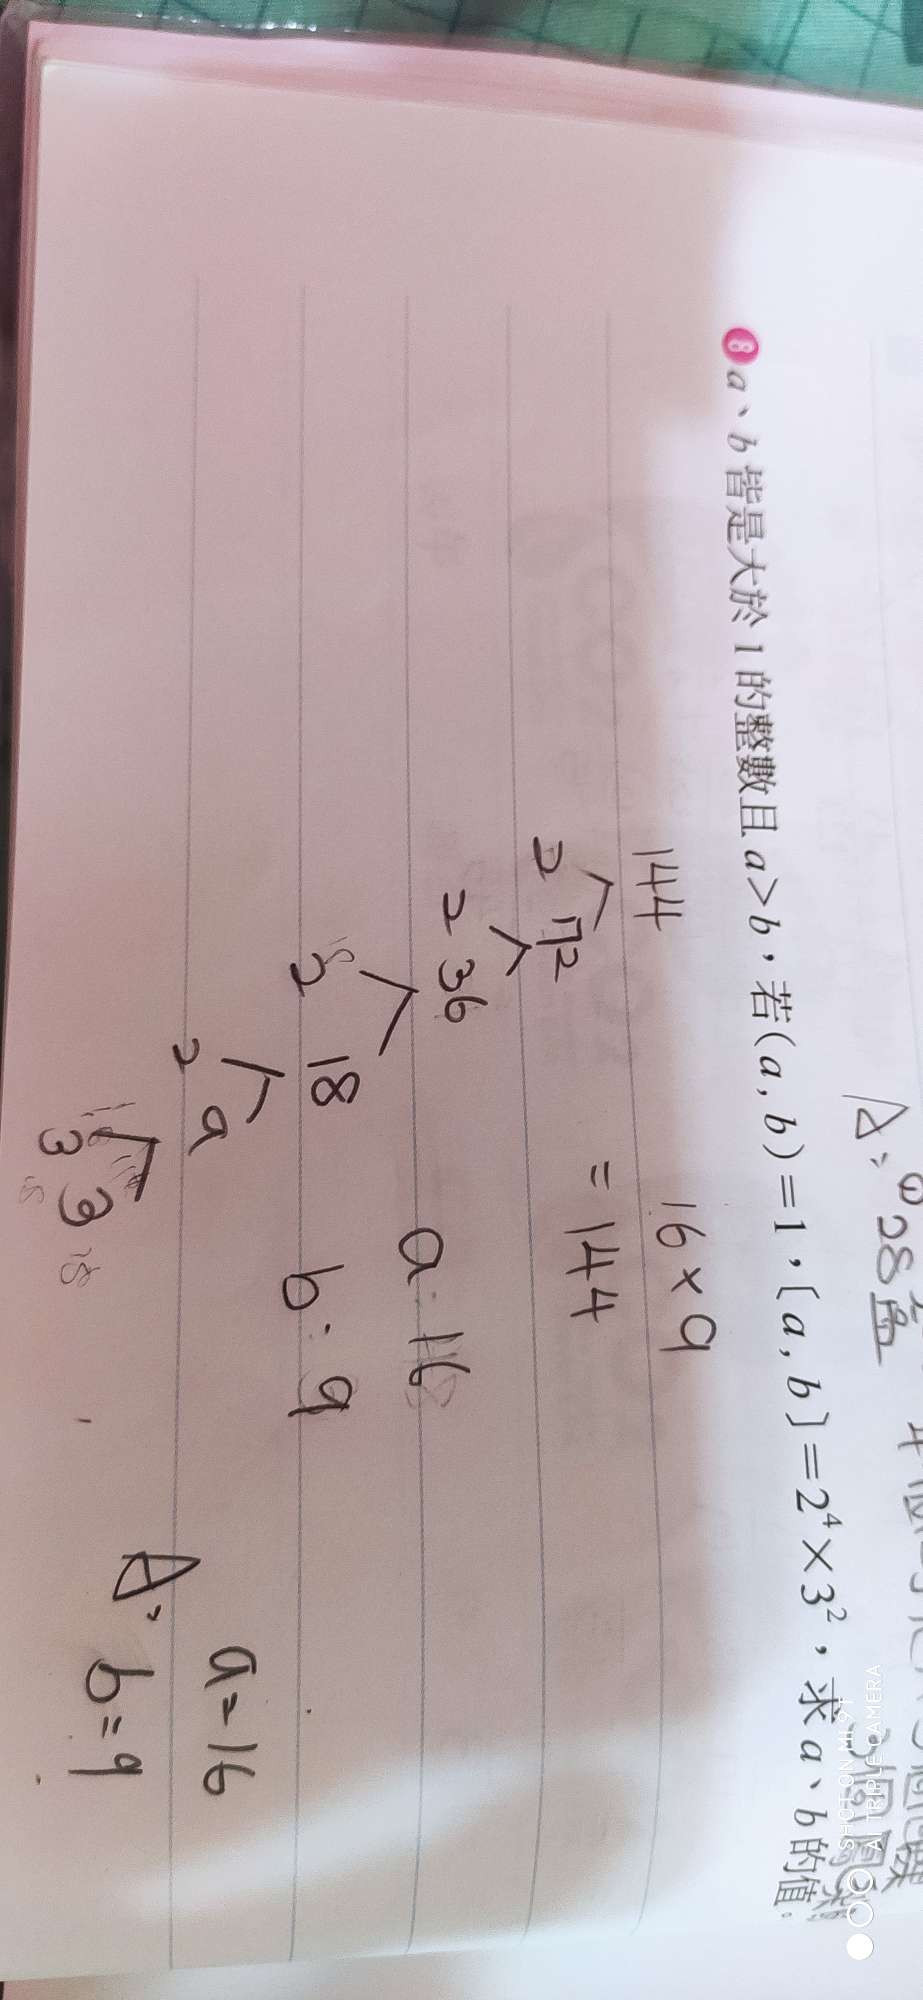 A：28盒
8 a、b皆是大於1的整數且a>b，若(a,b)=1，[a,b]=2⁴×3²，求a、b的值。
144
2 72
2 36
2 18
2 9
3 3
16×9
=144
a:16
b:9
A: a=16
b=9
SHOT ON MI 9T
AI TRIPLE CAMERA